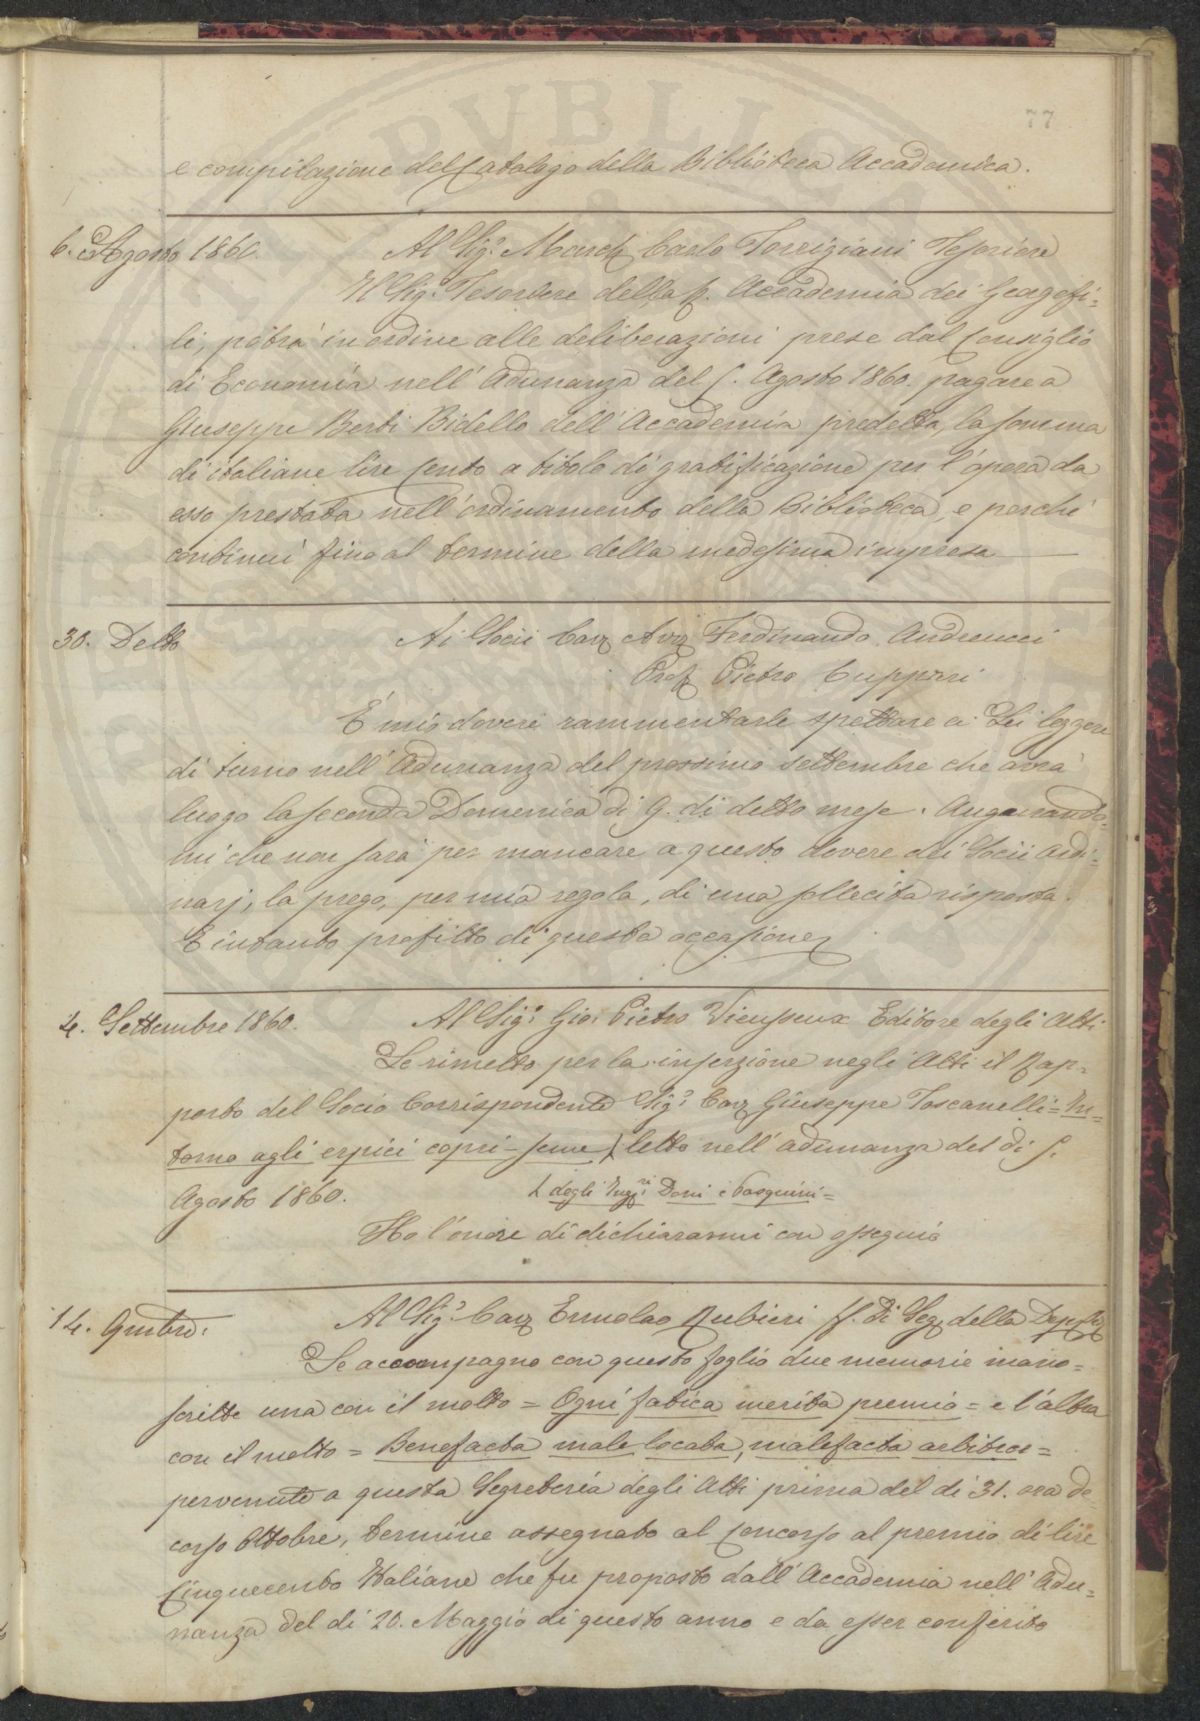 77
e compilazione del Catalogo della Biblioteca Accademica.
6. Agosto 1860. Al Sig.r March Carlo Torrigiani Tesoriere
Il Sig.r Tesoriere della R. Accademia dei Georgofi=
li, potrà in ordine alle deliberazioni prese dal Consiglio
di Economia nell' Adunanza del 5. Agosto 1860. pagare a
Giuseppe Berti Bidello dell' Accademia predetta, la somma
di italiane lire Cento a titolo di gratificazione per l'opera da
esso prestata nell'ordinamento della Biblioteca, e perchè
continui fino al termine della medesima impresa
30. Detto Ai Socii Cav Avv Ferdinando Andreucci
Prof Pietro Cuppari
È mio dovere rammentarle spettare a Lei leggere
di turno nell' Adunanza del prossimo settembre che avrà
luogo la seconda Domenica dì 9. di detto mese. Augurando=
mi che non sarà per mancare a questo dovere dei Socii ordi=
narj, la prego, per mia regola, di una sollecita risposta.
E intanto profitto di questa occasione
4. Settembre 1860. Al Sig.r Gio. Pietro Vieusseux Editore degli Atti
Le rimetto per la inserzione negli Atti il Rap=
porto del Socio Corrispondente Sig.r Cav Giuseppe Toscanelli = In=
torno agli erpici copri-seme letto nell' adunanza del dì 5.
Agosto 1860. degli Ingri Doni e Pasquini =
Ho l'onore di dichiararmi con ossequio
14. 9mbre: Al Sig.r Cav Ermolao Rubieri f. di Seg della
Le accompagno con questo foglio due memorie mano=
scritte una con il motto = Ogni fatica merita premio = e l'altra
con il motto = Benefacta male locata, malefacta arbitror =
pervenute a questa Segreteria degli Atti prima del dì 31. ora de=
corso Ottobre, termine assegnato al Concorso al premio di lire
Cinquecento Italiane che fu proposto dall' Accademia nell' Adu=
nanza del dì 20. Maggio di questo anno e da esser conferito